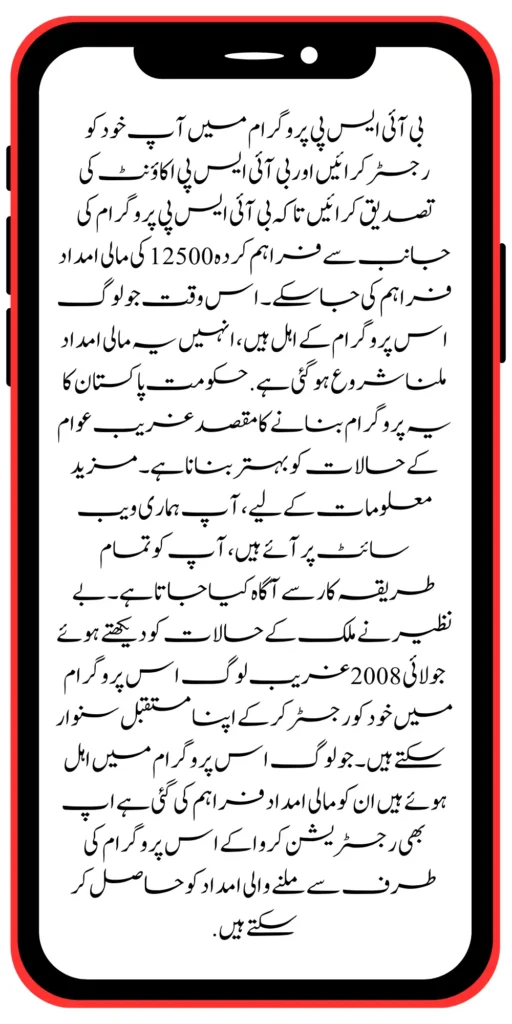 بی آئی ایس پی پروگرام میں آپ خود کو
رجسٹر کرائیں اور بی آئی ایس پی اکاؤنٹ کی
تصدیق کرائیں تاکہ بی آئی ایس پی پروگرام کی
جانب سے فراہم کردہ 12500 کی مالی امداد
فراہم کی جا سکے۔ اس وقت جو لوگ
اس پروگرام کے اہل ہیں، انہیں یہ مالی امداد
ملنا شروع ہو گئی ہے. حکومت پاکستان کا
یہ پروگرام بنانے کا مقصد غریب عوام
کے حالات کو بہتر بنانا ہے۔ مزید
معلومات کے لیے، آپ ہماری ویب
سائٹ پر آئے ہیں، آپ کو تمام
طریقہ کار سے آگاہ کیا جاتا ہے۔ بے
نظیر نے ملک کے حالات کو دیکھتے ہوئے
جولائی 2008 غریب لوگ اس پروگرام
میں خود کو رجسٹر کر کے اپنا مستقبل سنوار
سکتے ہیں۔ جو لوگ اس پروگرام میں اہل
ہوئے ہیں ان کو مالی امداد فراہم کی گئی ہے اپ
بھی رجسٹریشن کروا کے اس پروگرام کی
طرف سے ملنے والی امداد کو حاصل کر
سکتے ہیں.